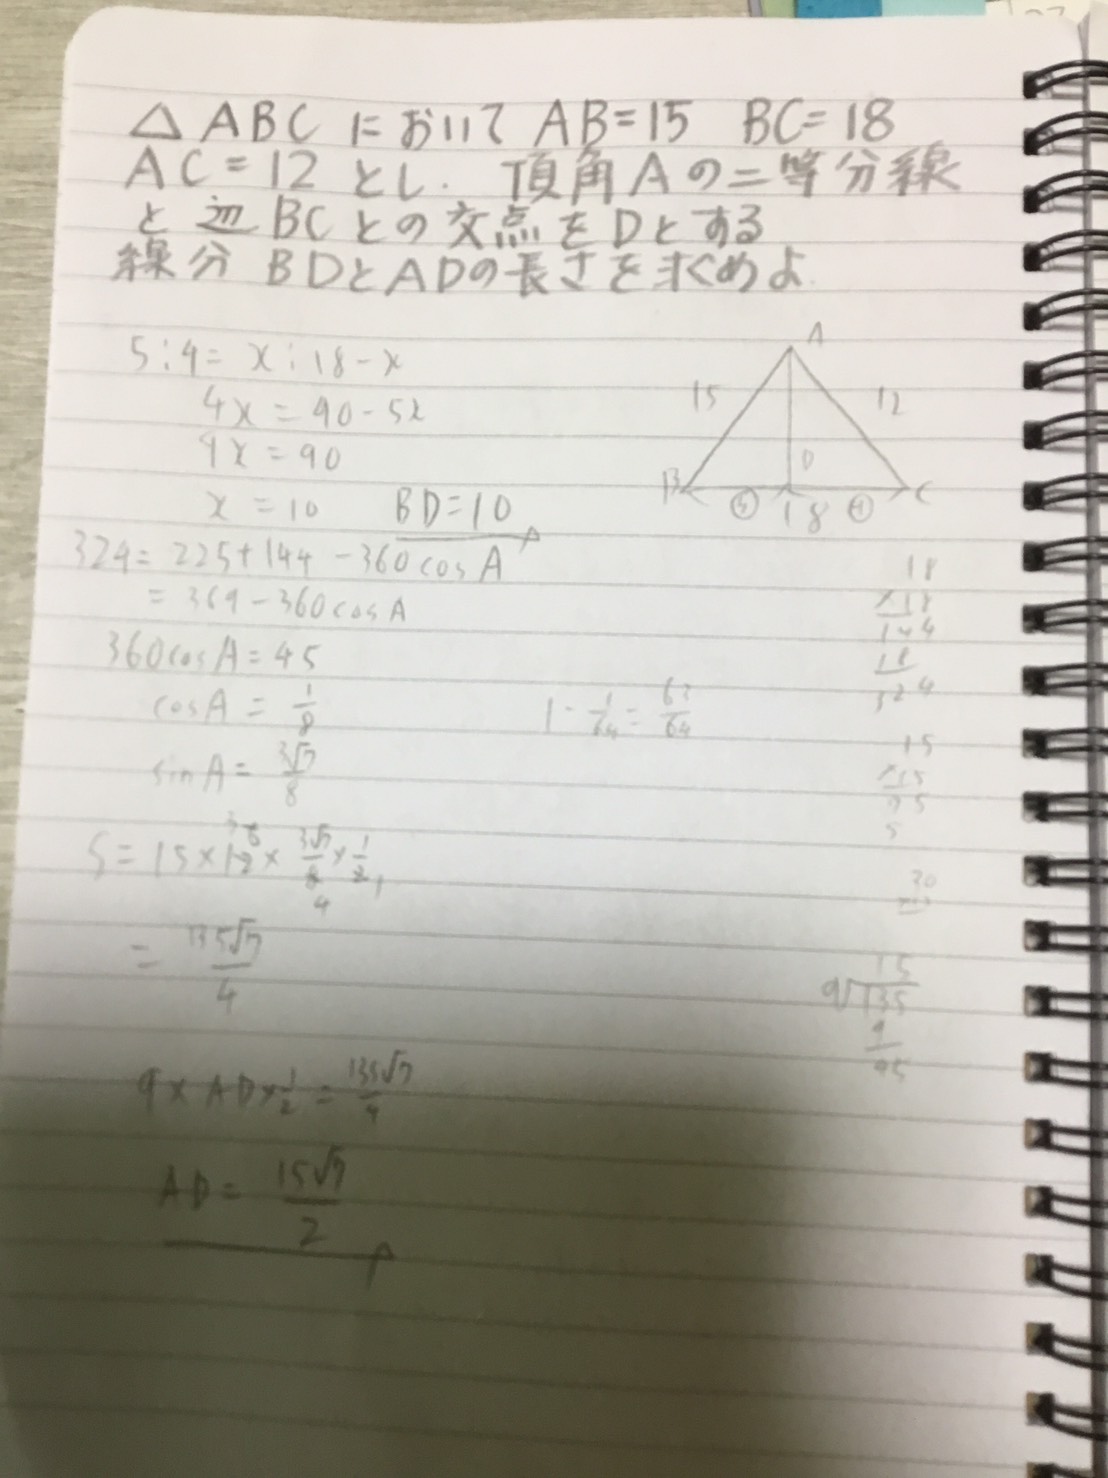 △ABCにおいて AB=15 BC=18
AC=12 とし. 頂角Aの二等分線
と辺BCとの交点をDとする
線分 BDとADの長さを求めよ.
5:4= x:18-x
4x = 90-5x
9x = 90
x = 10 BD=10
A
15
12
D
B
C
⑤ 18 ④
324= 225+144 -360cosA
= 369-360cosA
360cosA=45
cosA = 1/8
1 - 1/64 = 63/64
sinA= 3√7/8
S= 15×12× 3√7/8 × 1/2
= 135√7/4
9×AD×1/2 = 135√7/4
AD= 15√7/2
18
×18
144
18
324
15
×15
75
5
30
15
9√135
9
45